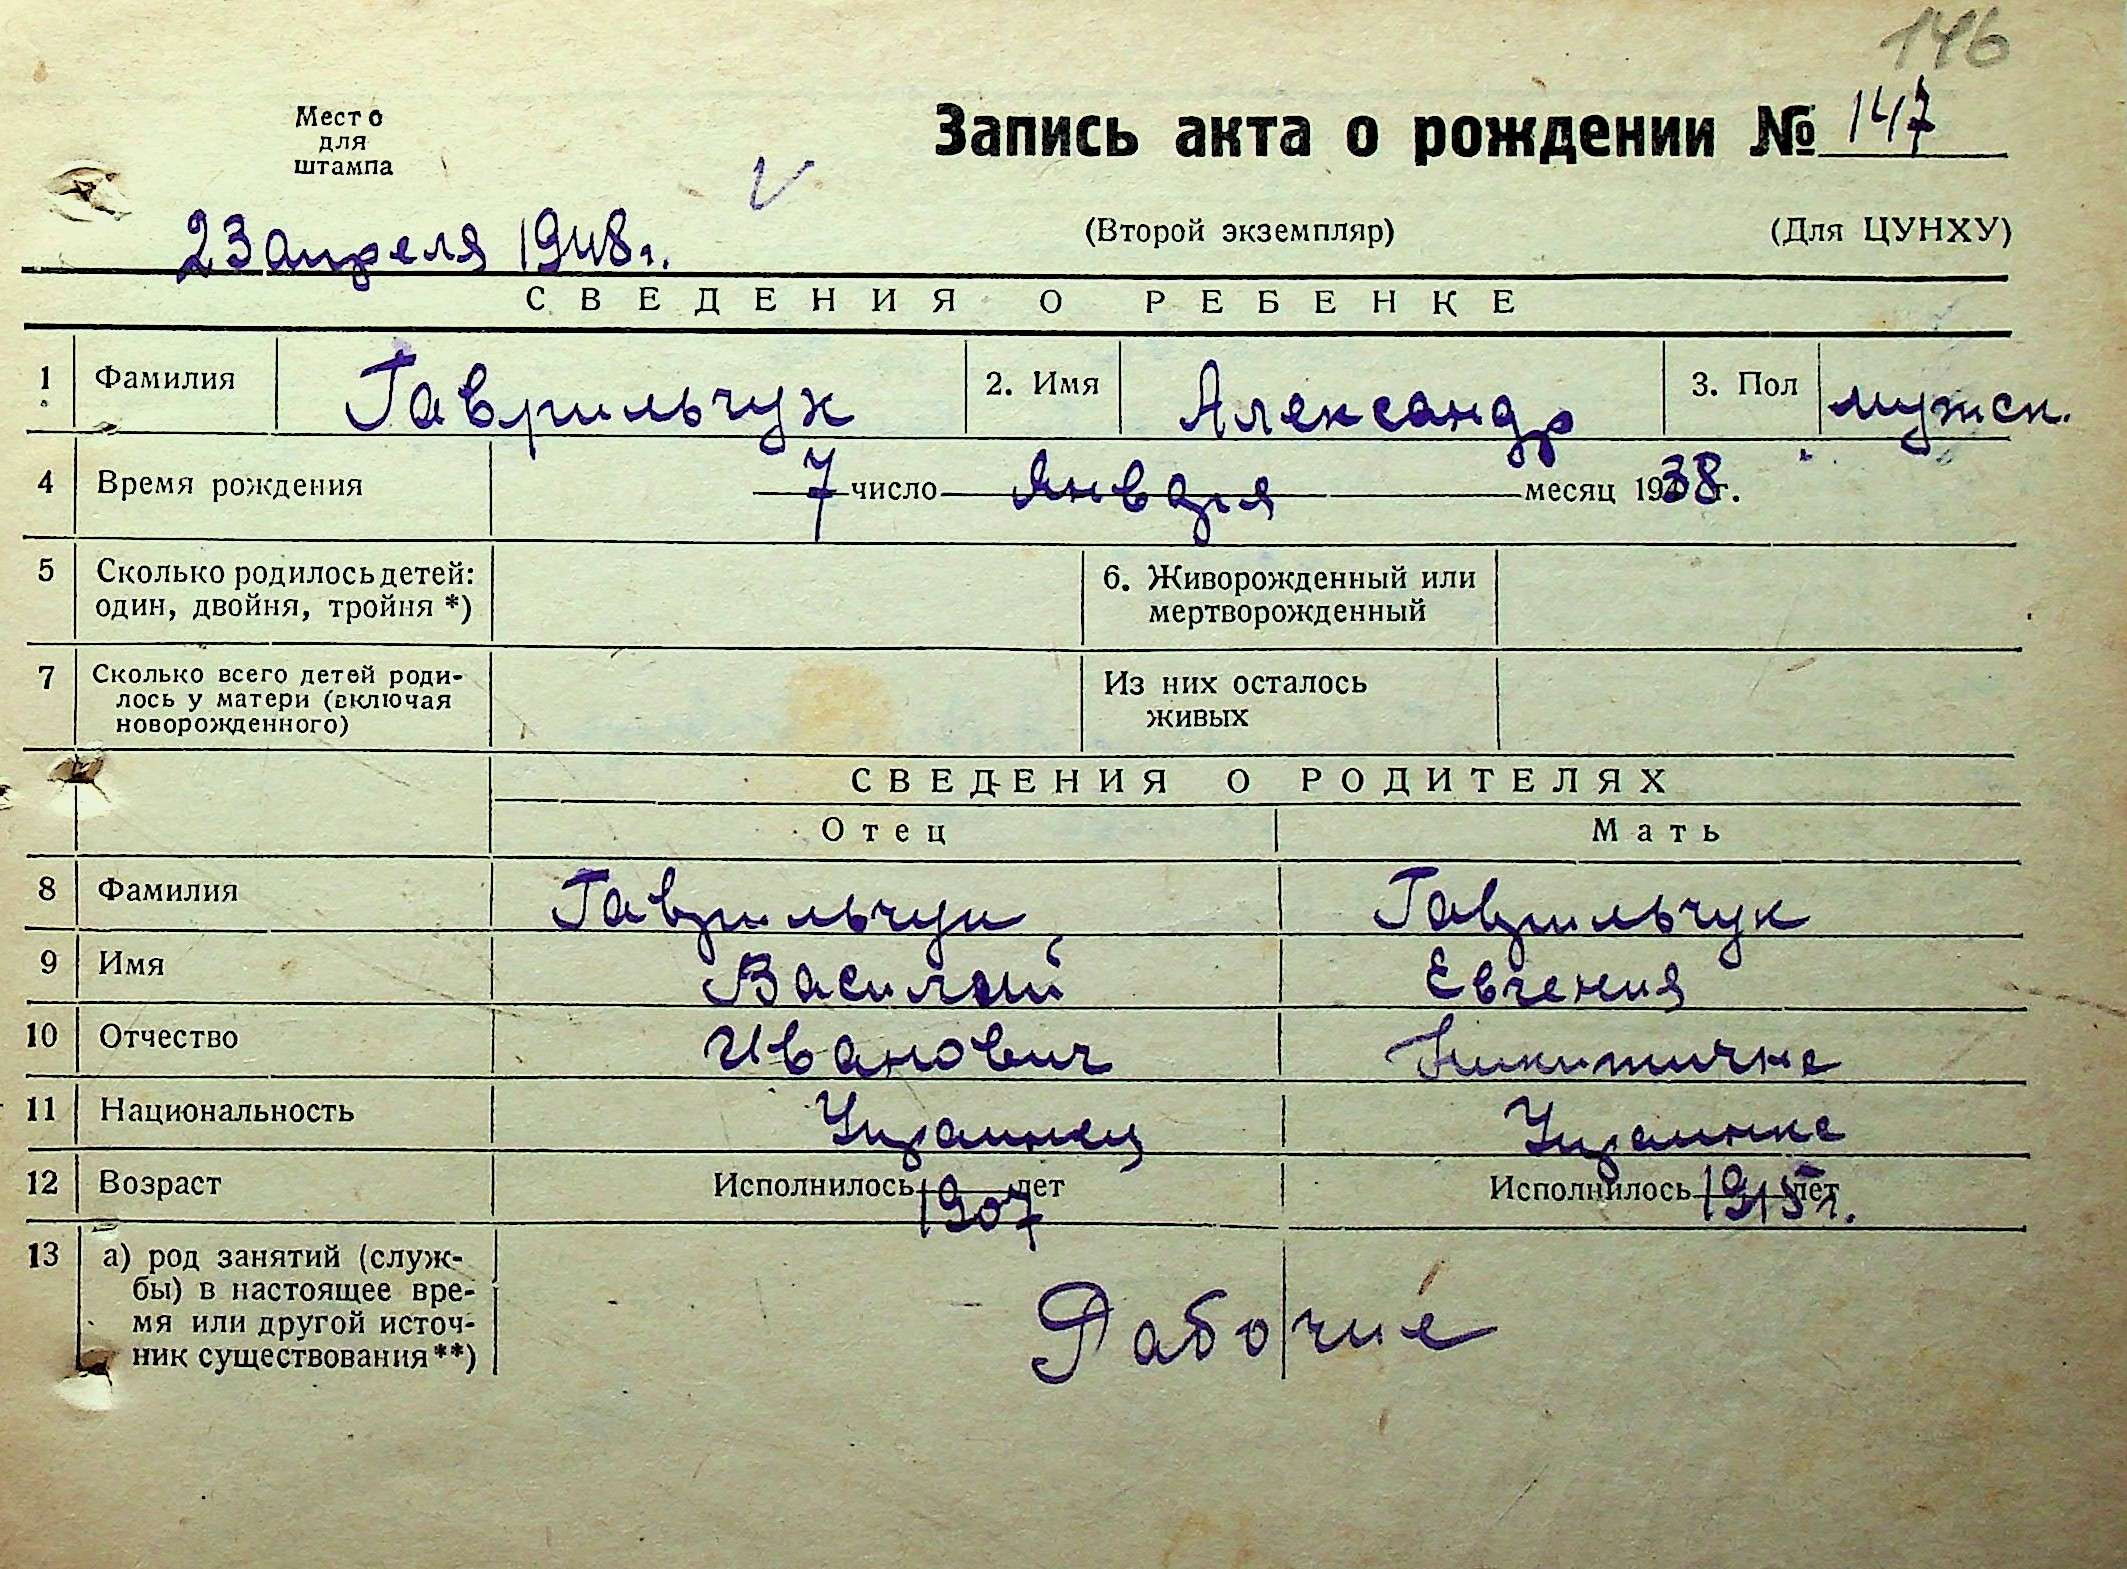 146
Место
для
штампа
Запись акта о рождении № 147
23 апреля 1948 г.
(Второй экземпляр) (Для ЦУНХУ)
СВЕДЕНИЯ О РЕБЕНКЕ
1 Фамилия Гаврильчук 2. Имя Александр 3. Пол мужск.
4 Время рождения 7 число Января месяц 1938 г.
5 Сколько родилось детей: 6. Живорожденный или
один, двойня, тройня *) мертворожденный
7 Сколько всего детей роди- Из них осталось
лось у матери (включая живых
новорожденного)
СВЕДЕНИЯ О РОДИТЕЛЯХ
Отец Мать
8 Фамилия Гаврильчук Гаврильчук
9 Имя Василий Евгения
10 Отчество Иванович Никитична
11 Национальность Украинец Украинка
12 Возраст Исполнилось 1907 лет Исполнилось 1915 г. лет
13 а) род занятий (служ-
бы) в настоящее вре-
мя или другой источ- Рабочие
ник существования **)